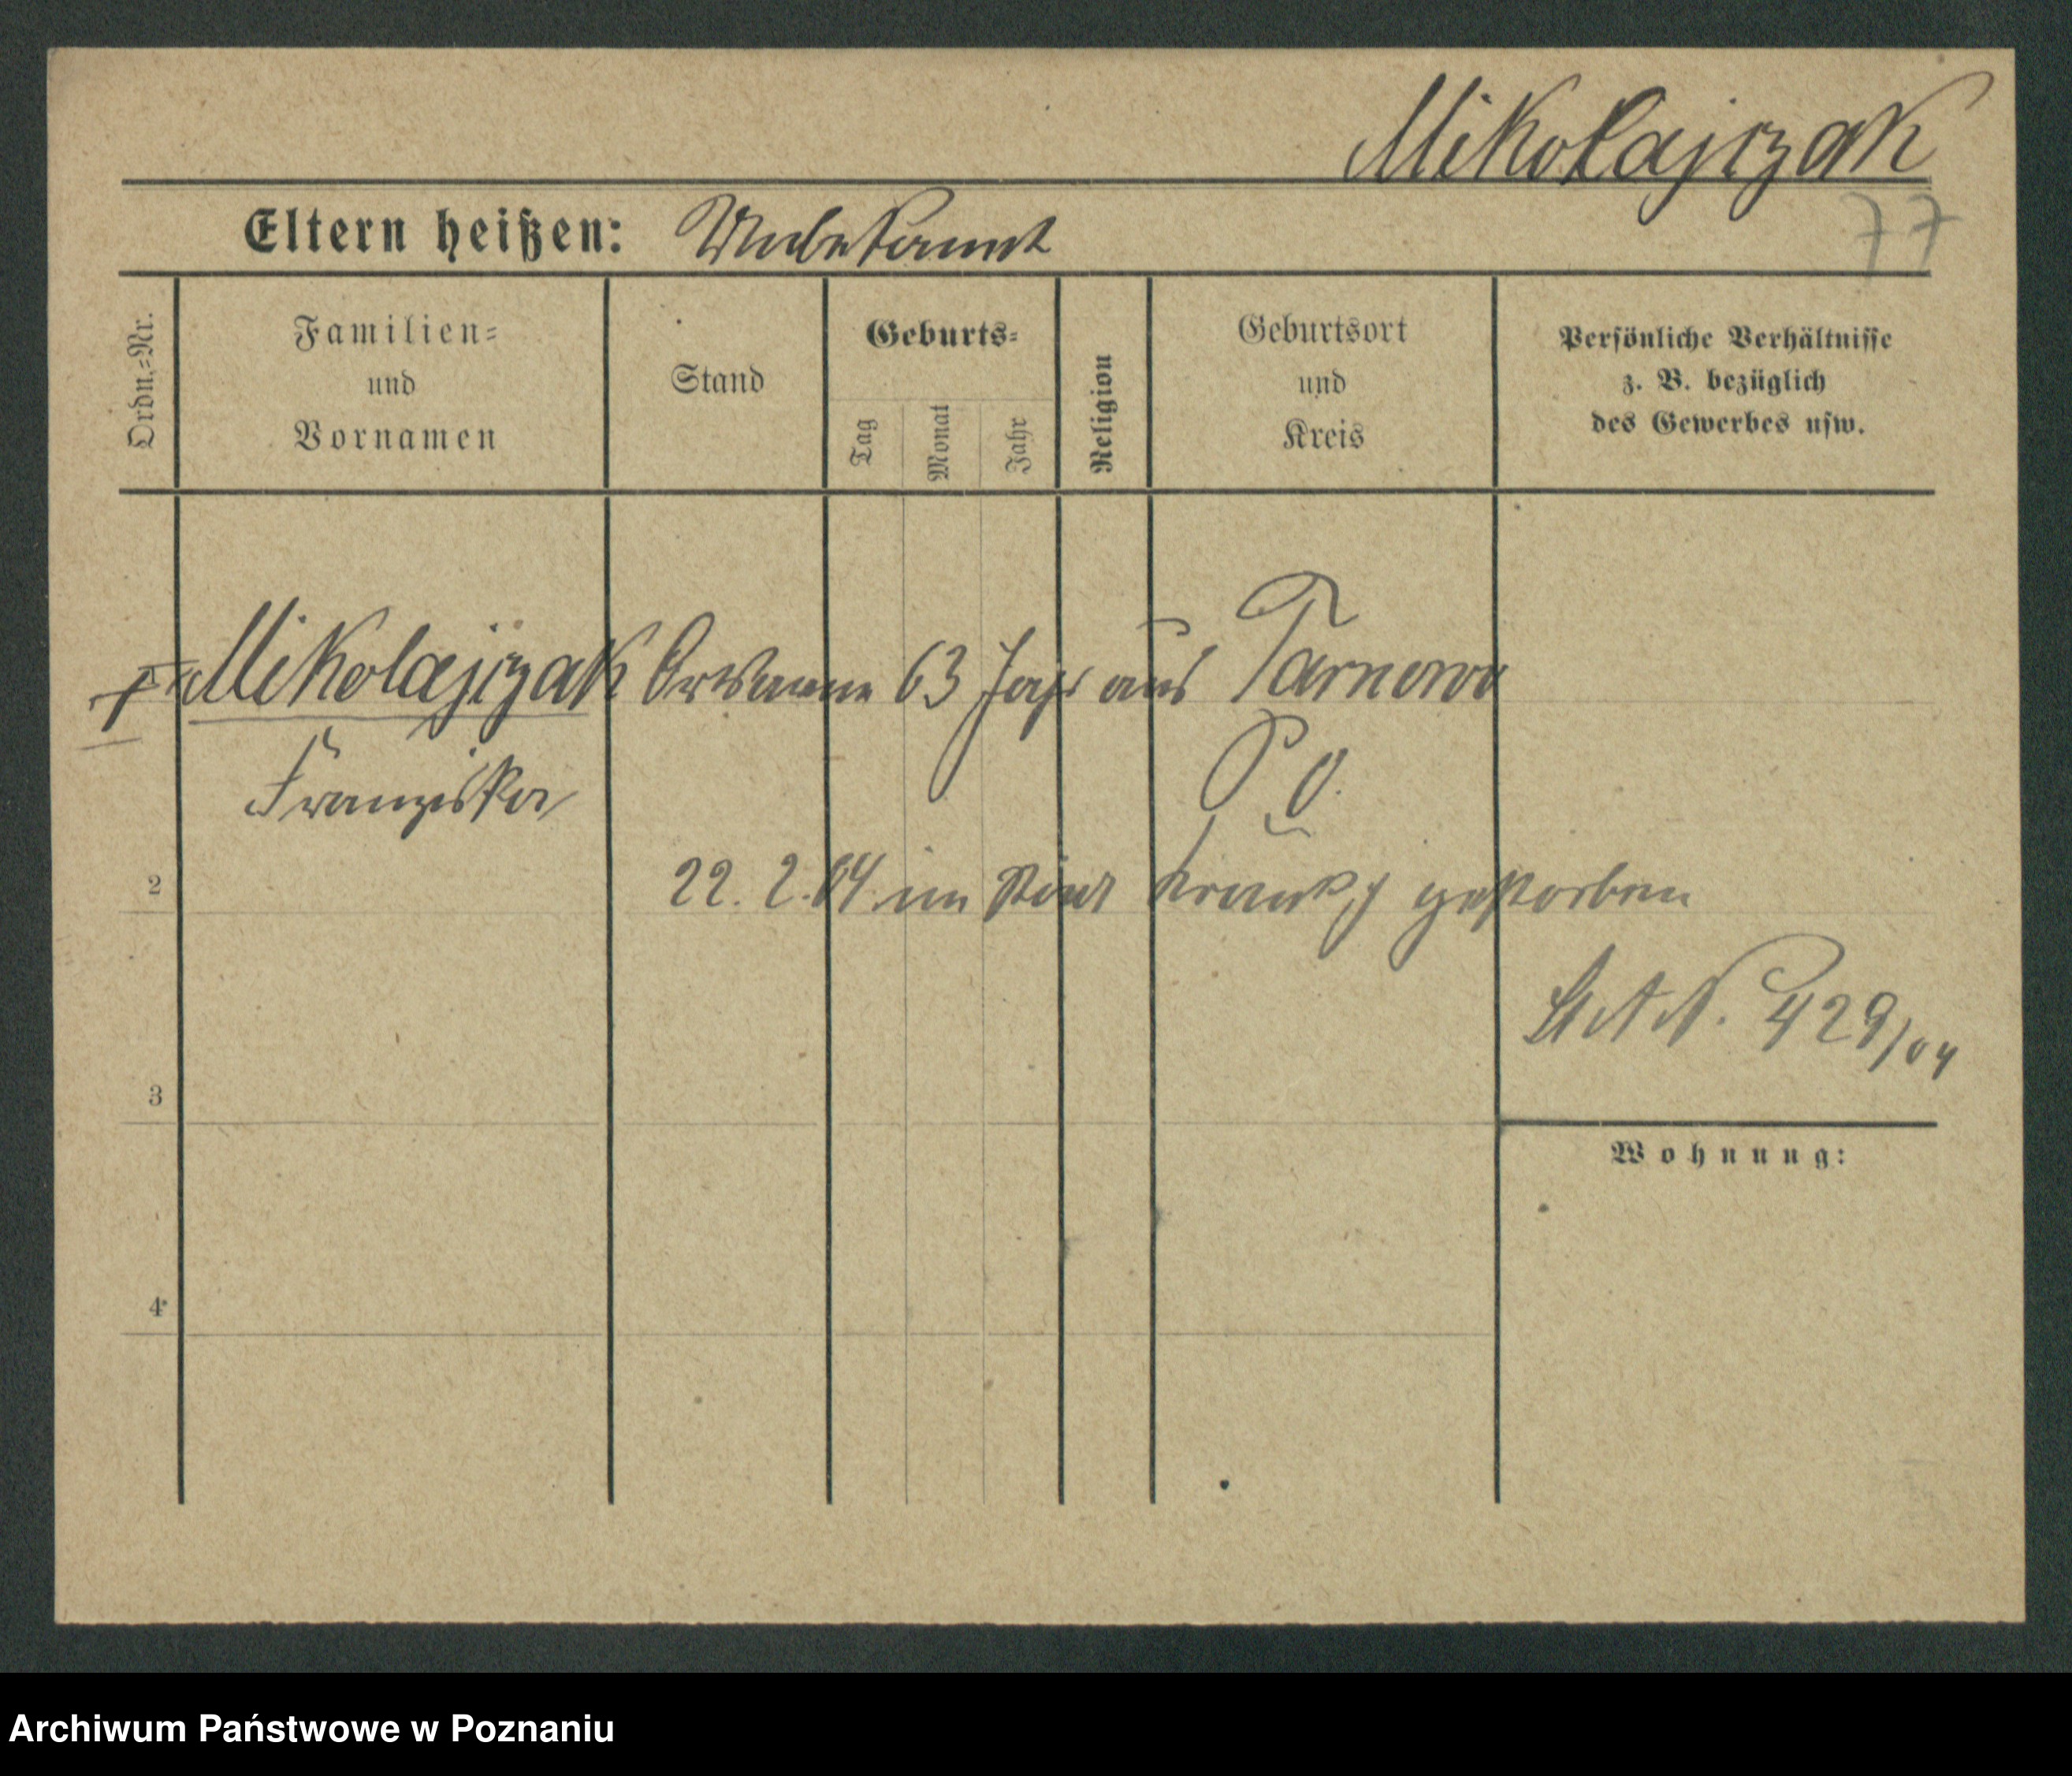 Mikołajczak
77
Eltern heißen: Unbekannt
Ordn.-Nr.
Familien-
und
Vornamen
Stand
Geburts-
Tag
Monat
Jahr
Religion
Geburtsort
und
Kreis
Persönliche Verhältnisse
z. B. bezüglich
des Gewerbes usw.
Mikolajczak Ortsarme 63 Jahr aus Tarnowo
Franziska P. O.
2 22. 2. 04 im Stadt Krankh gestorben
St A N. 429/04
3
Wohnung:
4
Archiwum Państwowe w Poznaniu